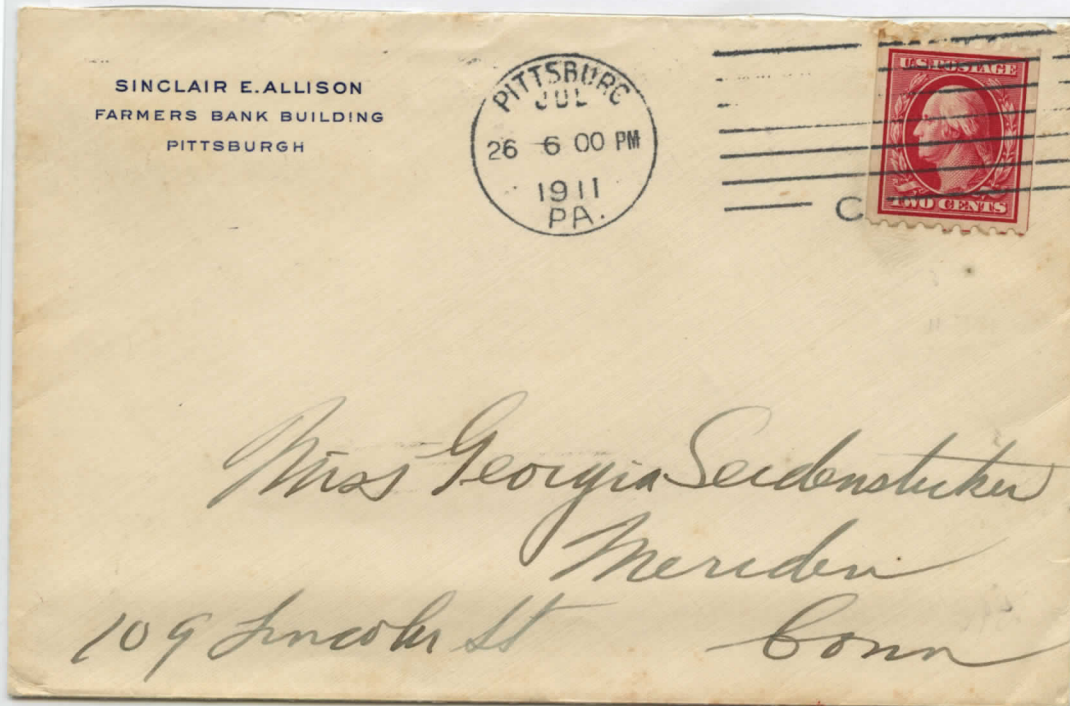 SINCLAIR E. ALLISON
FARMERS BANK BUILDING
PITTSBURGH
PITTSBURG
JUL
26 6 00 PM
1911
PA.
C
U.S. POSTAGE
TWO CENTS
Miss Georgia Seidenstucker
Meriden
109 Lincoln St Conn